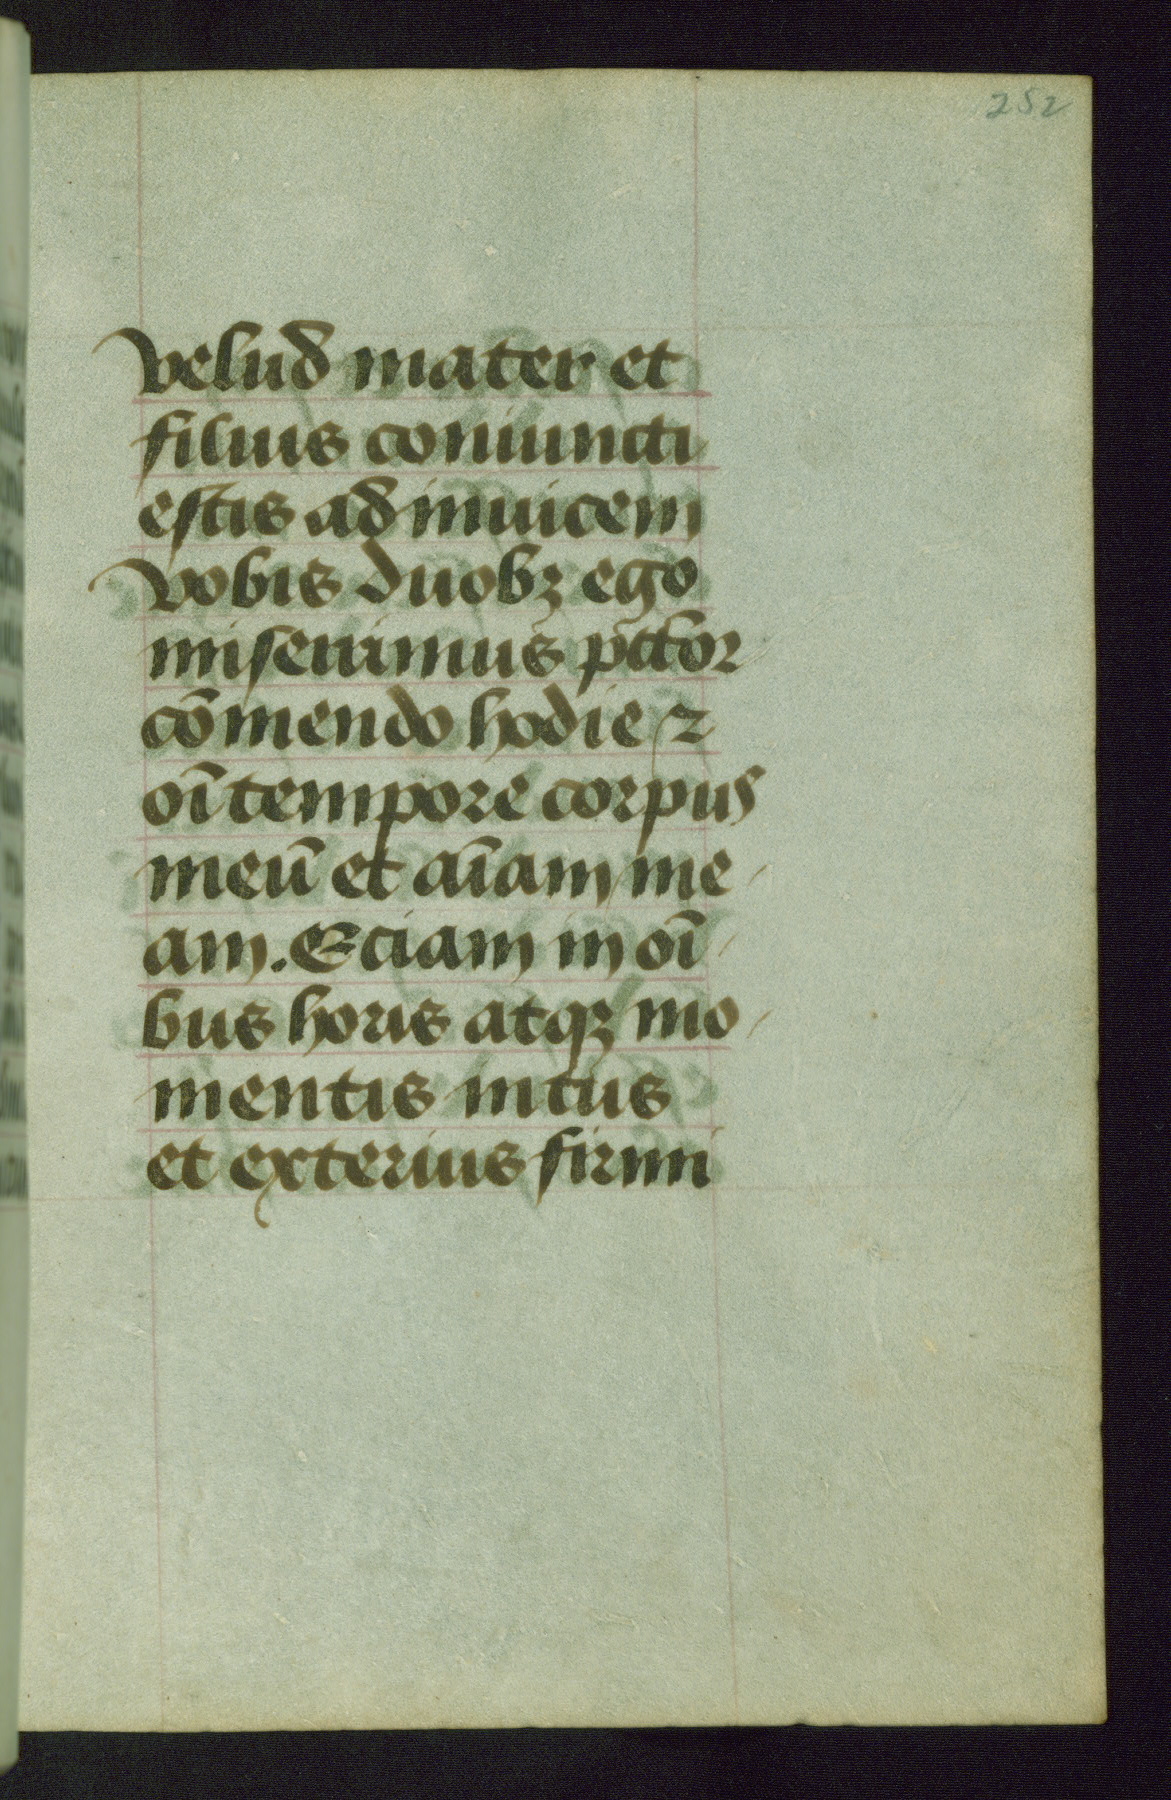 252
velud mater et
filius coniuncti
estis ad inuicem
Vobis duobꝫ ego
miserrimus pctor̄
cō mendo hodie ⁊
oī tempore corpus
meū et aīam me
am. Eciam in oī
bus horis atqꝫ mo
mentis intus
et exterius firmi